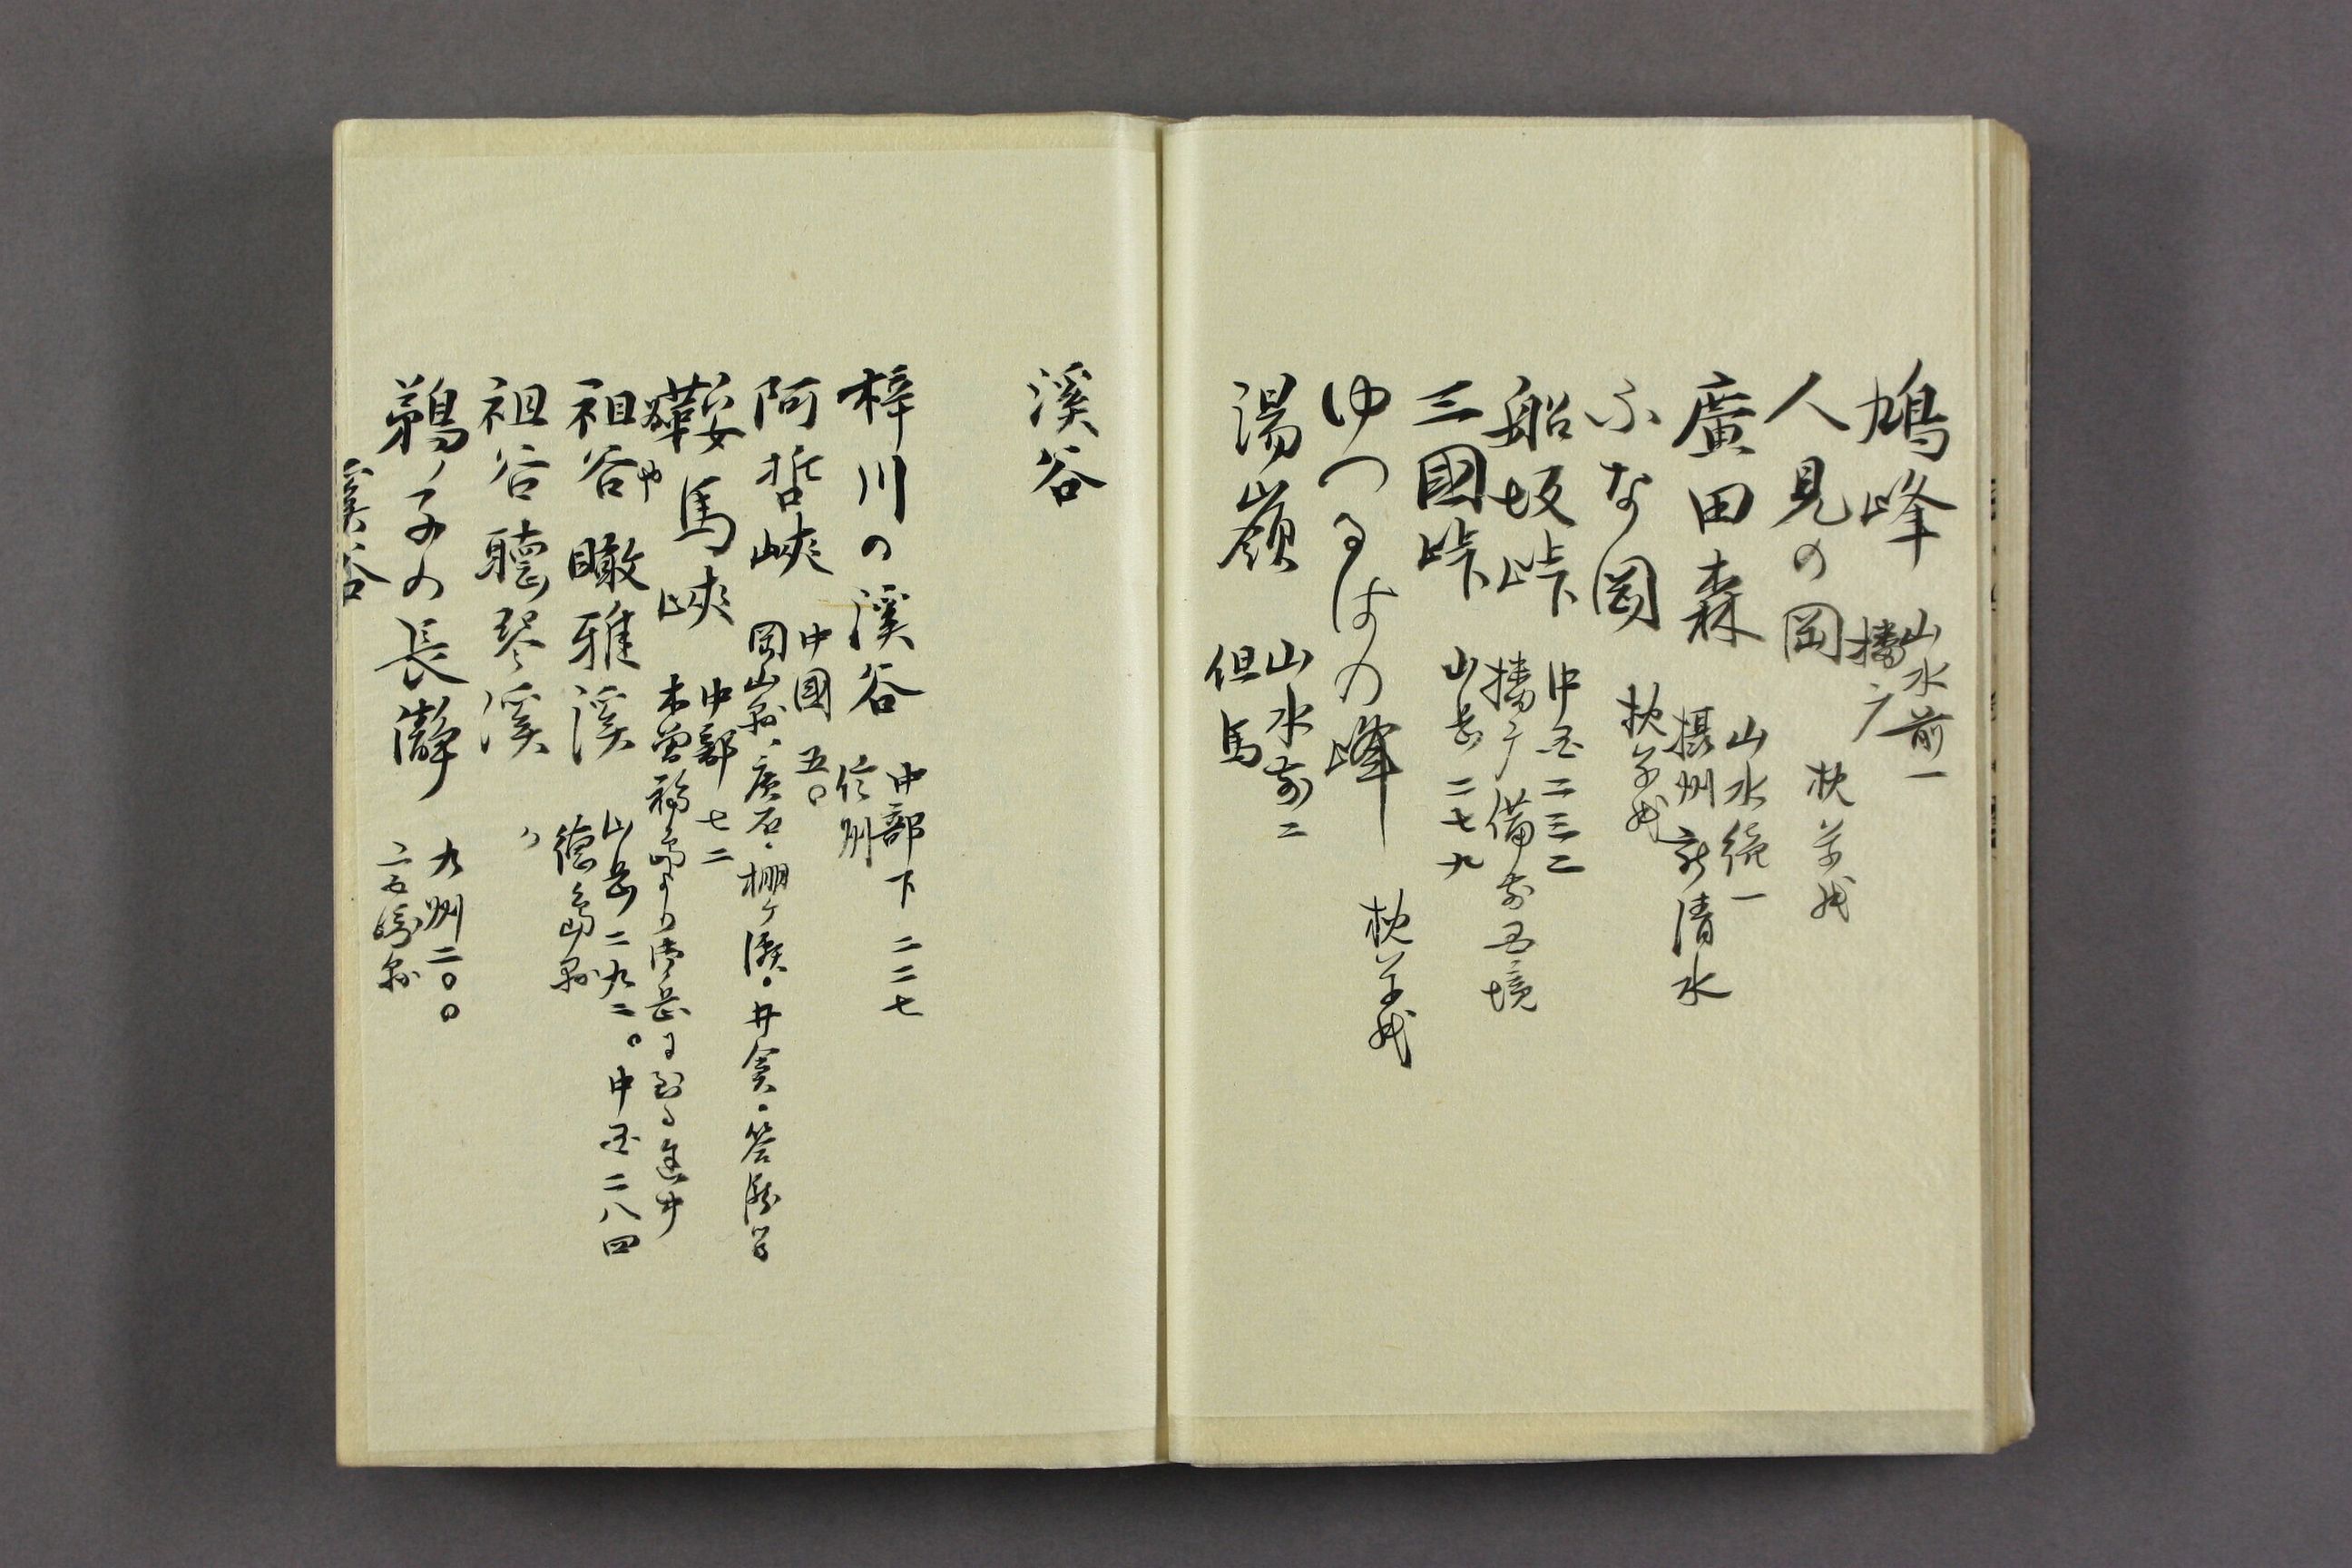 鳩峰
山水前一
播广
人見の岡
枕草紙
廣田森
山水続一
摂州 新清水
ふな岡
枕草紙
船坂峠
中国二三二
播广備前国境
三國峠
山岳二七九
ゆつるはの峰
枕草紙
湯嶺
山水前二
但馬
溪谷
梓川の溪谷
中部下 二二七
信州
阿哲峽
中國 五〇
岡山縣 唐石、棚ヶ瀑。井倉、
鞍馬峽
中部 七二
木曽福島より御岳に到る
祖谷瞰雅溪
山岳二九二。中国二八四
徳島縣
祖谷聴琴溪
〃
鵜ノ子の長瀞
九州二〇〇
宮崎縣
溪谷